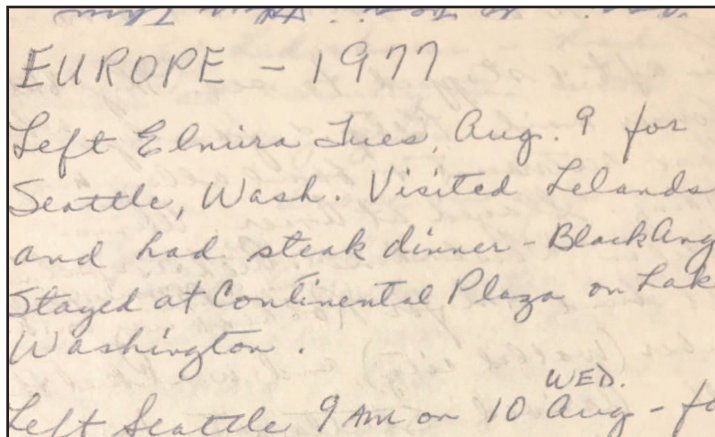 EUROPE - 1977
Left Elmira Tues, Aug. 9 for
Seattle, Wash. Visited Lelands
and had steak dinner - Black Ang
Stayed at Continental Plaza on Lak
Washington.
WED.
Left Seattle 9 AM on 10 Aug - fo